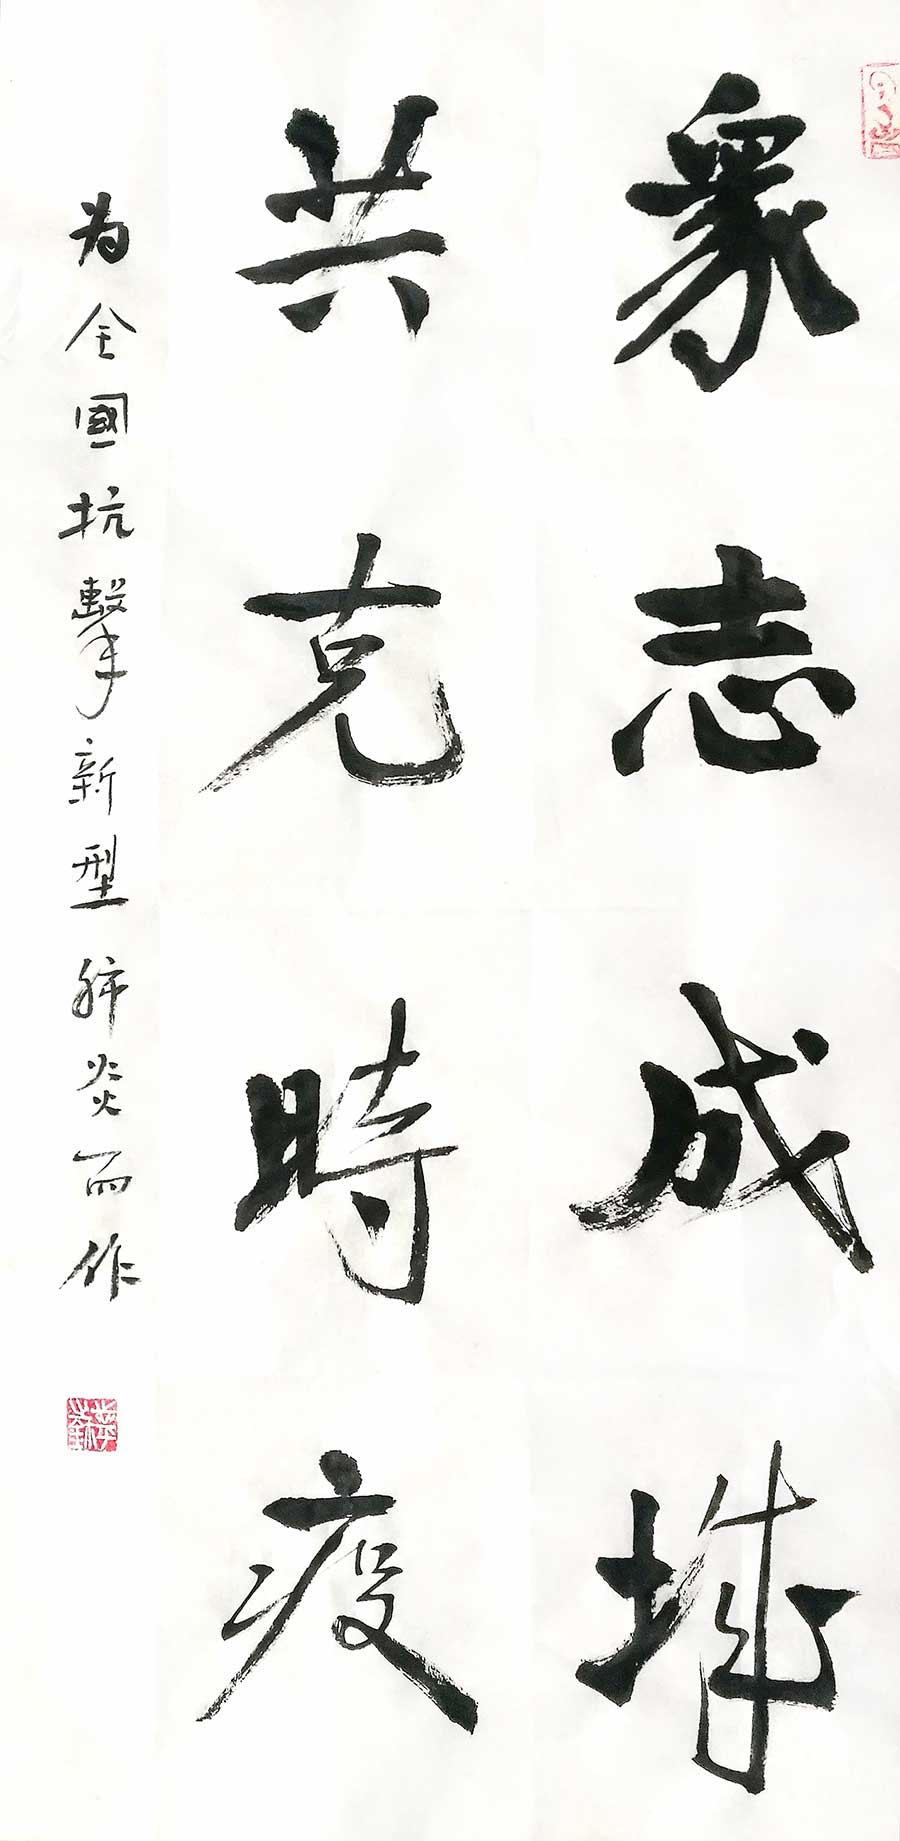 眾志成城
共克時疫
为全國抗擊新型肺炎而作